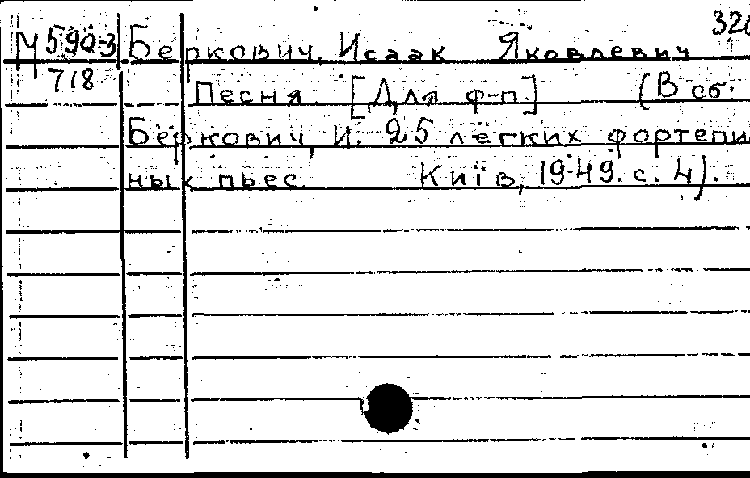 320
М 590-3 Беркович, Исаак Яковлевич
718 Песня. [Для ф-п] (В сб.
Беркович, И. 25 лёгких фортепи
ных пьес. Київ, 1949. с. 4).